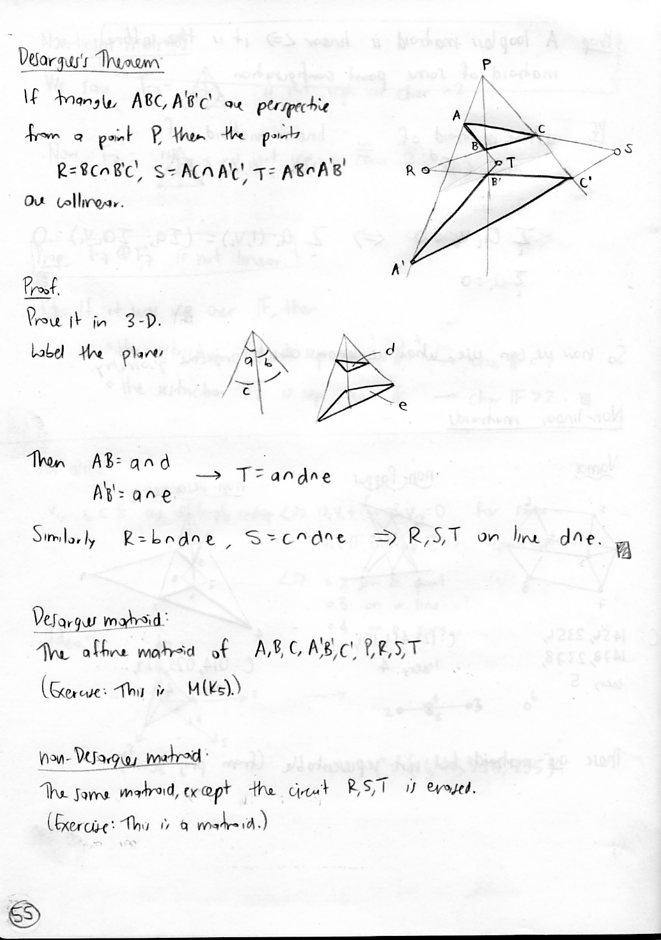 Desargues's Theorem
If triangles ABC, A'B'C' are perspective
from a point P, then the points
R=BC∩B'C', S=AC∩A'C', T=AB∩A'B'
are collinear.
P
A
B
C
S
R
T
B'
C'
A'
Proof.
Prove it in 3-D.
Label the planes
a
b
c
d
e
Then AB = a∩d
A'B' = a∩e
→ T = a∩d∩e
Similarly R = b∩d∩e, S = c∩d∩e ⇒ R,S,T on line d∩e.
Desargues matroid:
The affine matroid of A,B,C,A',B',C',P,R,S,T
(Exercise: This is M(K5).)
non-Desargues matroid:
The same matroid, except the circuit R,S,T is erased.
(Exercise: This is a matroid.)
55